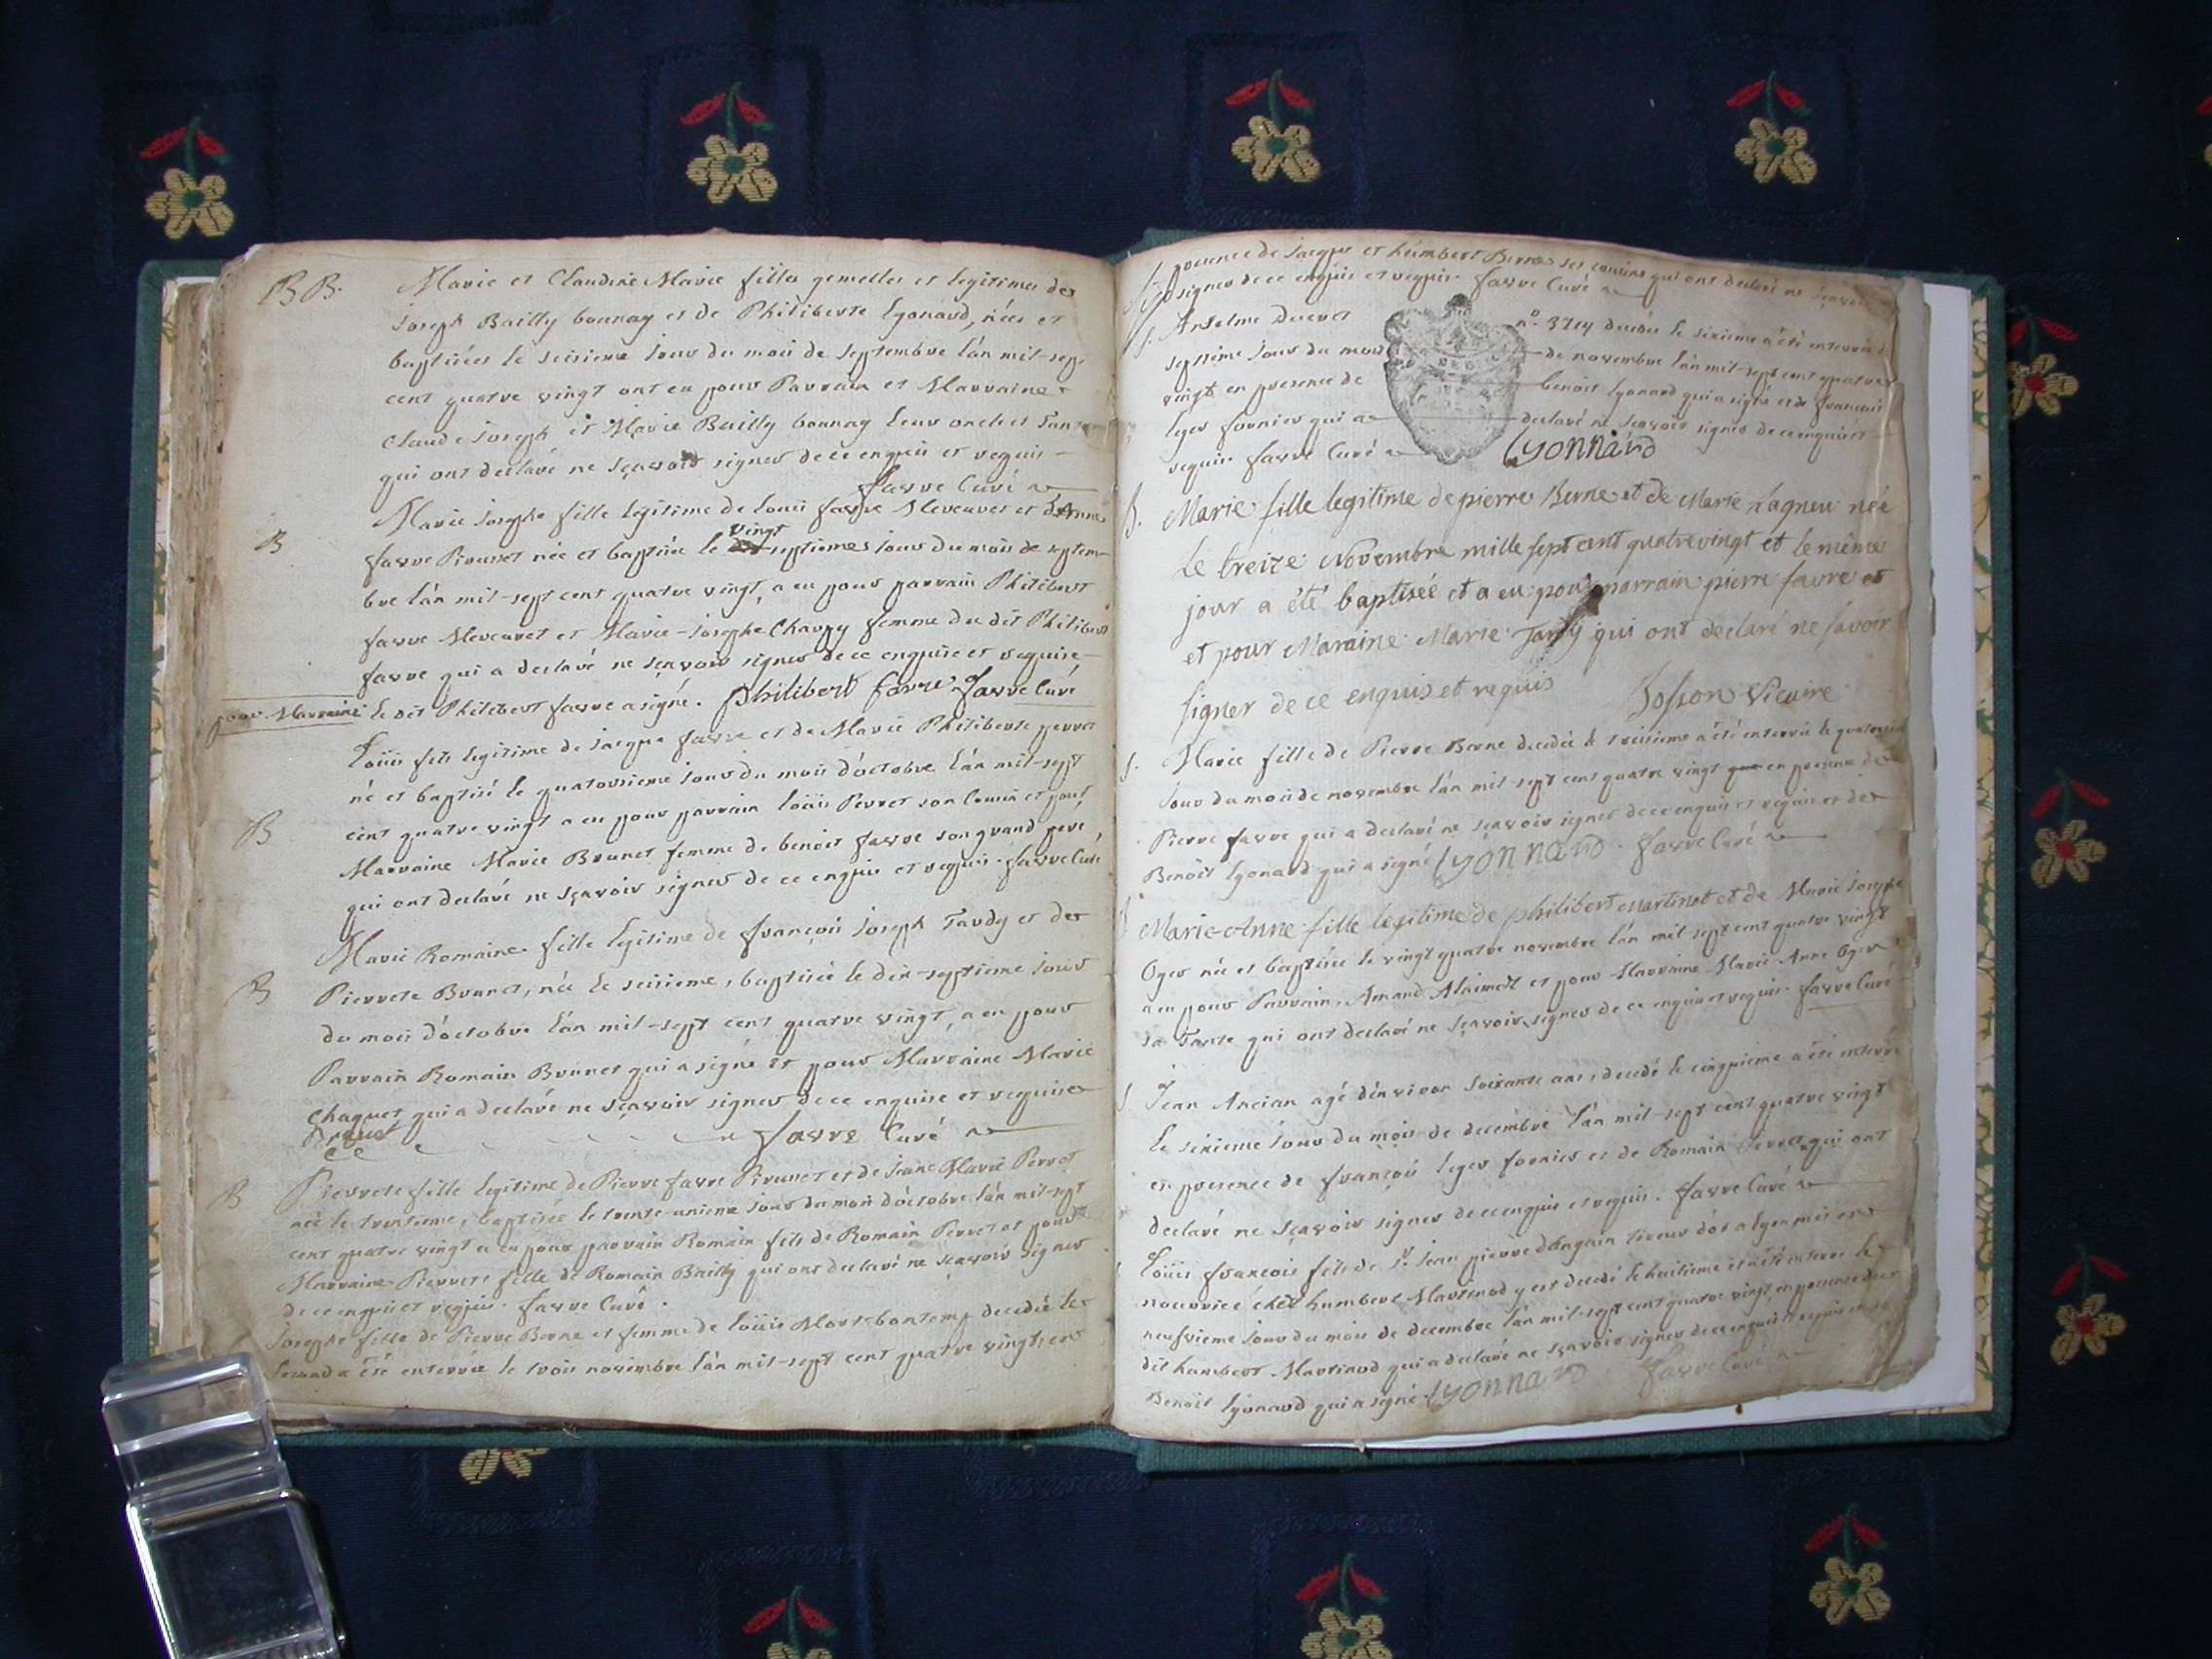 BB. Marie et Claudine Marie filles gemelles et legitimes de
Joseph Bailly bonnay et de Philiberte Lyonard, nées et
baptisées le seisieme jour du mois de Septembre l'an mil-sept
cent quatre vingt ont eu pour Parrain et Marraine
Claude Joseph et Marie Bailly bonnay leurs oncle et Tante
qui ont declaré ne sçavoir signer de ce enquis et requis
favre Curé
Marie Josephe fille legitime de Louis favre et d'Anne
B favre née et baptisée le vingt septieme jour du mois de septem-
bre l'an mil-sept cent quatre vingt, a eu pour parrain Philibert
favre et Marie-Josephe femme du dit Philibert
favre qui a declaré ne sçavoir signer de ce enquise et requise
pour Marraine le dit Philibert favre a signé. philibert favre favre Curé
Loüis fils legitime de Jacque favre et de Marie Philiberte perret
né et baptisé le quatorsieme jour du mois d'octobre l'an mil-sept
B cent quatre vingt a eu pour parrain Loüis Perret son Cousin et pour
Marraine Marie Brunet femme de benoit favre son grand pere,
qui ont declaré ne sçavoir signer de ce enquis et requis. favre Curé
Marie Romaine fille legitime de françois Joseph Tardy et de
B Pierrete Brunet, née le seisieme, baptisée le dix-septieme jour
du mois d'octobre l'an mil-sept cent quatre vingt, a eu pour
Parrain Romain Brunet qui a signé et pour Marraine Marie
Chaquet qui a declaré ne sçavoir signer de ce enquise et requise
favre Curé
B Pierrete fille legitime de Pierre favre et de Jeane Marie Perret
née le trentieme, baptisée le trente-unieme jour du mois d'octobre l'an mil-sept
cent quatre vingt a eu pour parrain Romain fils de Romain Perret et pour
Marraine Pierrete fille de Romain Bailly qui ont declaré ne sçavoir signer
de ce enquis et requis. favre Curé.
Josephe fille de Pierre Berne et femme de Loüis decedée le
second a été enterrée le trois novembre l'an mil-sept cent quatre vingt, en
presence de Jacque et humbert Berne ses cousins qui ont declaré ne sçavoir
signer de ce enquis et requis. favre Curé
S. Anselme no. 3714 decedé le sixieme a été enterré le
septieme jour du mois de novembre l'an mil-sept cent quatre
vingt en presence de benoit Lyonard qui a signé et de françois
leger fornier qui a declaré ne sçavoir signer de ce enquis et
requis favre Curé Lyonnard
B. Marie fille legitime de pierre Berne et de Marie née
le treize Novembre mille sept cent quatrevingt et le même
jour a été baptisée et a eu pour parrain pierre favre et
et pour Maraine Marie Tardy qui ont declaré ne savoir
signer de ce enquis et requis Josson Vicaire
S. Marie fille de Pierre Berne decedée le treisieme a été enterrée le quatorsieme
jour du mois de novembre l'an mil-sept cent quatre vingt en presence de
Pierre favre qui a declaré ne sçavoir signer de ce enquis et requis et de
Benoit Lyonard qui a signé Lyonnard. favre Curé
Marie-Anne fille legitime de philibert Martinot et de Marie Josephe
Oger née et baptisée le vingt quatre novembre l'an mil sept cent quatre vingt
a eu pour Parrain, Amand et pour Marraine Marie Anne Oger
sa Tante qui ont declaré ne sçavoir signer de ce enquis et requis. favre Curé
S Jean Ancian agé d'environ soixante ans, decedé le cinquieme a été enterré
le sixieme jour du mois de decembre l'an mil-sept cent quatre vingt
en presence de françois leger fornier et de Romain Perret qui ont
declaré ne sçavoir signer de ce enquis et requis. favre Curé
Loüis françois fils de Sr. Jean pierre tireur d'or a lyon mis en
nourrice chez humbert Martinod y est decedé le huitieme et a été enterré le
neufvieme jour du mois de decembre l'an mil-sept cent quatre vingt en presence du
dit humbert Martinod qui a declaré ne sçavoir signer de ce enquis et requis et de
Benoit Lyonard qui a signé. Lyonnard favre Curé